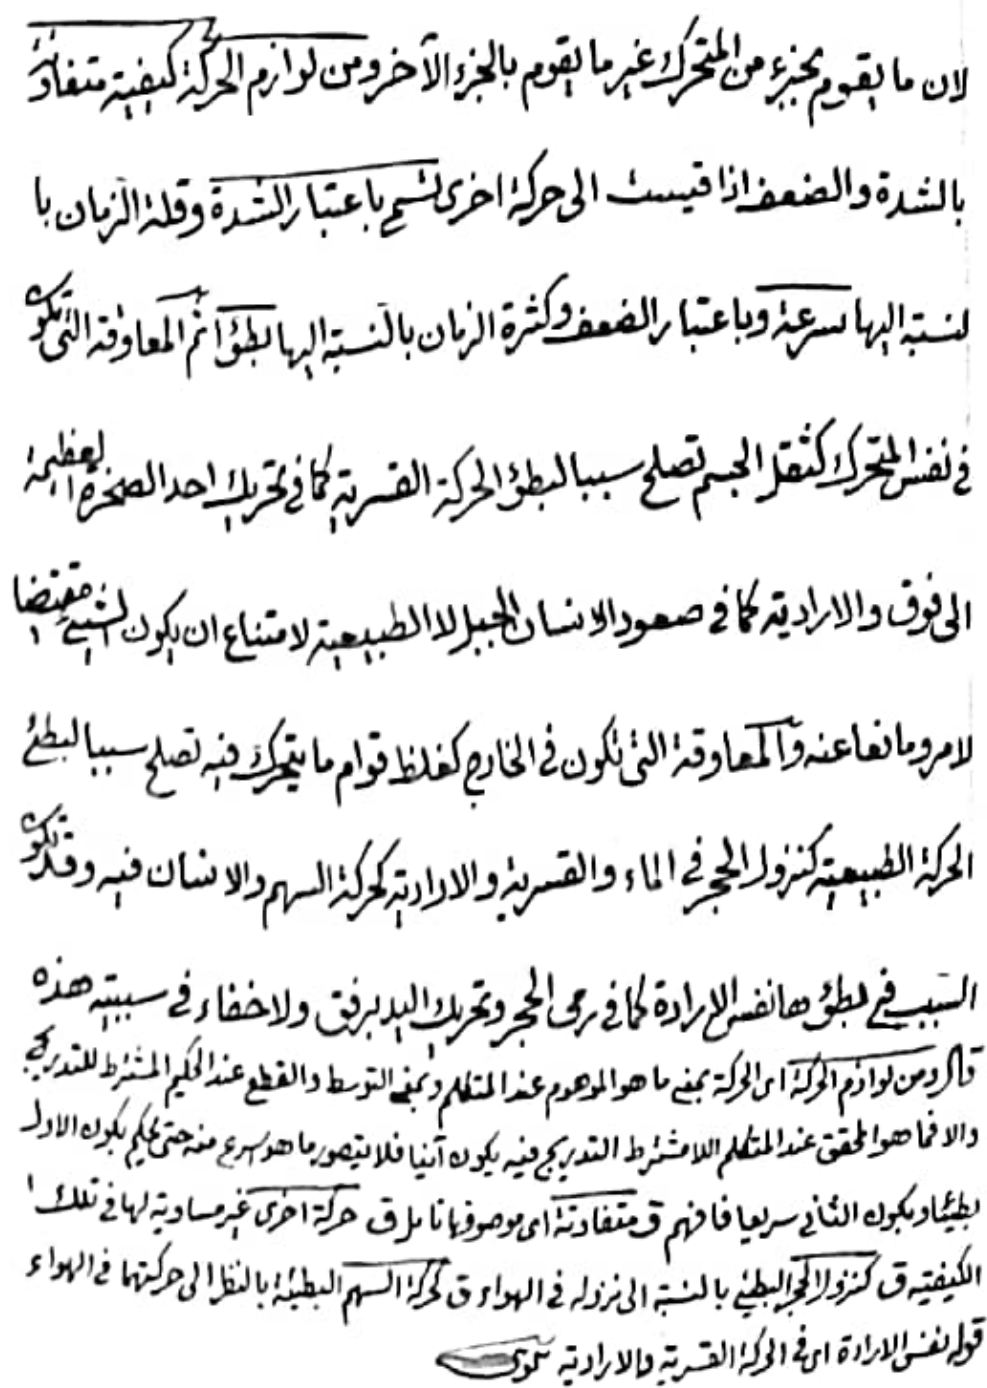 لان ما يقوم بجزء من المتحرك غير ما يقوم بالجزء الآخر ومن لوازم الحركة كيفية متفاوتة
بالشدة والضعف اذا قيست الى حركة اخرى تسمى باعتبار الشدة وقلة الزمان با
لنسبة اليها سرعة وباعتبار الضعف وكثرة الزمان بالنسبة اليها بطؤا ثم المعاوقة التى تكون
فى نفس المتحرك كثقل الجسم تصلح سببا لبطؤ الحركة القسرية كما فى تحريك احد الصخرة العظيمة
الى فوق والارادية كما فى صعود الانسان الجبل لا الطبيعية لامتناع ان يكون الشيئ مقتضيا
لامر ومانعا عنه والمعاوقة التى تكون فى الخارج كغلظ قوام ما يتحرك فيه تصلح سببا لبطئ
الحركة الطبيعية كنزول الحجر فى الماء والقسرية والارادية كحركة السهم والانسان فيه وقد تكون
السبب فى بطؤها نفس الارادة كما فى رمى الحجر وتحريك اليد برفق ولا خفاء فى سببية هذه
قال ومن لوازم الحركة اى الحركة بمعنى ما هو الموهوم عند المتكلم وبمعنى التوسط والقطع عند الحكيم المشترط للتدريج
والا فما هو المحقق عند المتكلم اللا مشترط التدريج فيه يكون آنيا فلا يتصور ما هو اسرع منه حتى يحكم بكون الاول
بطيئا وبكون الثانى سريعا فافهم ق متفاوتة اى موصوفها تامل ق حركة اخرى غير مساوية لها فى تلك ا
الكيفية ق كنزول الحجر البطيئ بالنسبة الى نزوله فى الهواء ق كحركة السهم البطيئة بالنظر الى حركتهما فى الهواء
قوله نفس الارادة اى فى الحركة القسرية والارادية